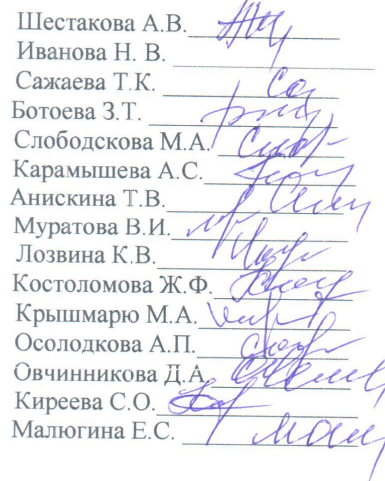 Шестакова А.В.
Иванова Н. В.
Сажаева Т.К.
Ботоева З.Т.
Слободскова М.А.
Карамышева А.С.
Анискина Т.В.
Муратова В.И.
Лозвина К.В.
Костоломова Ж.Ф.
Крышмарю М.А.
Осолодкова А.П.
Овчинникова Д.А.
Киреева С.О.
Малюгина Е.С.